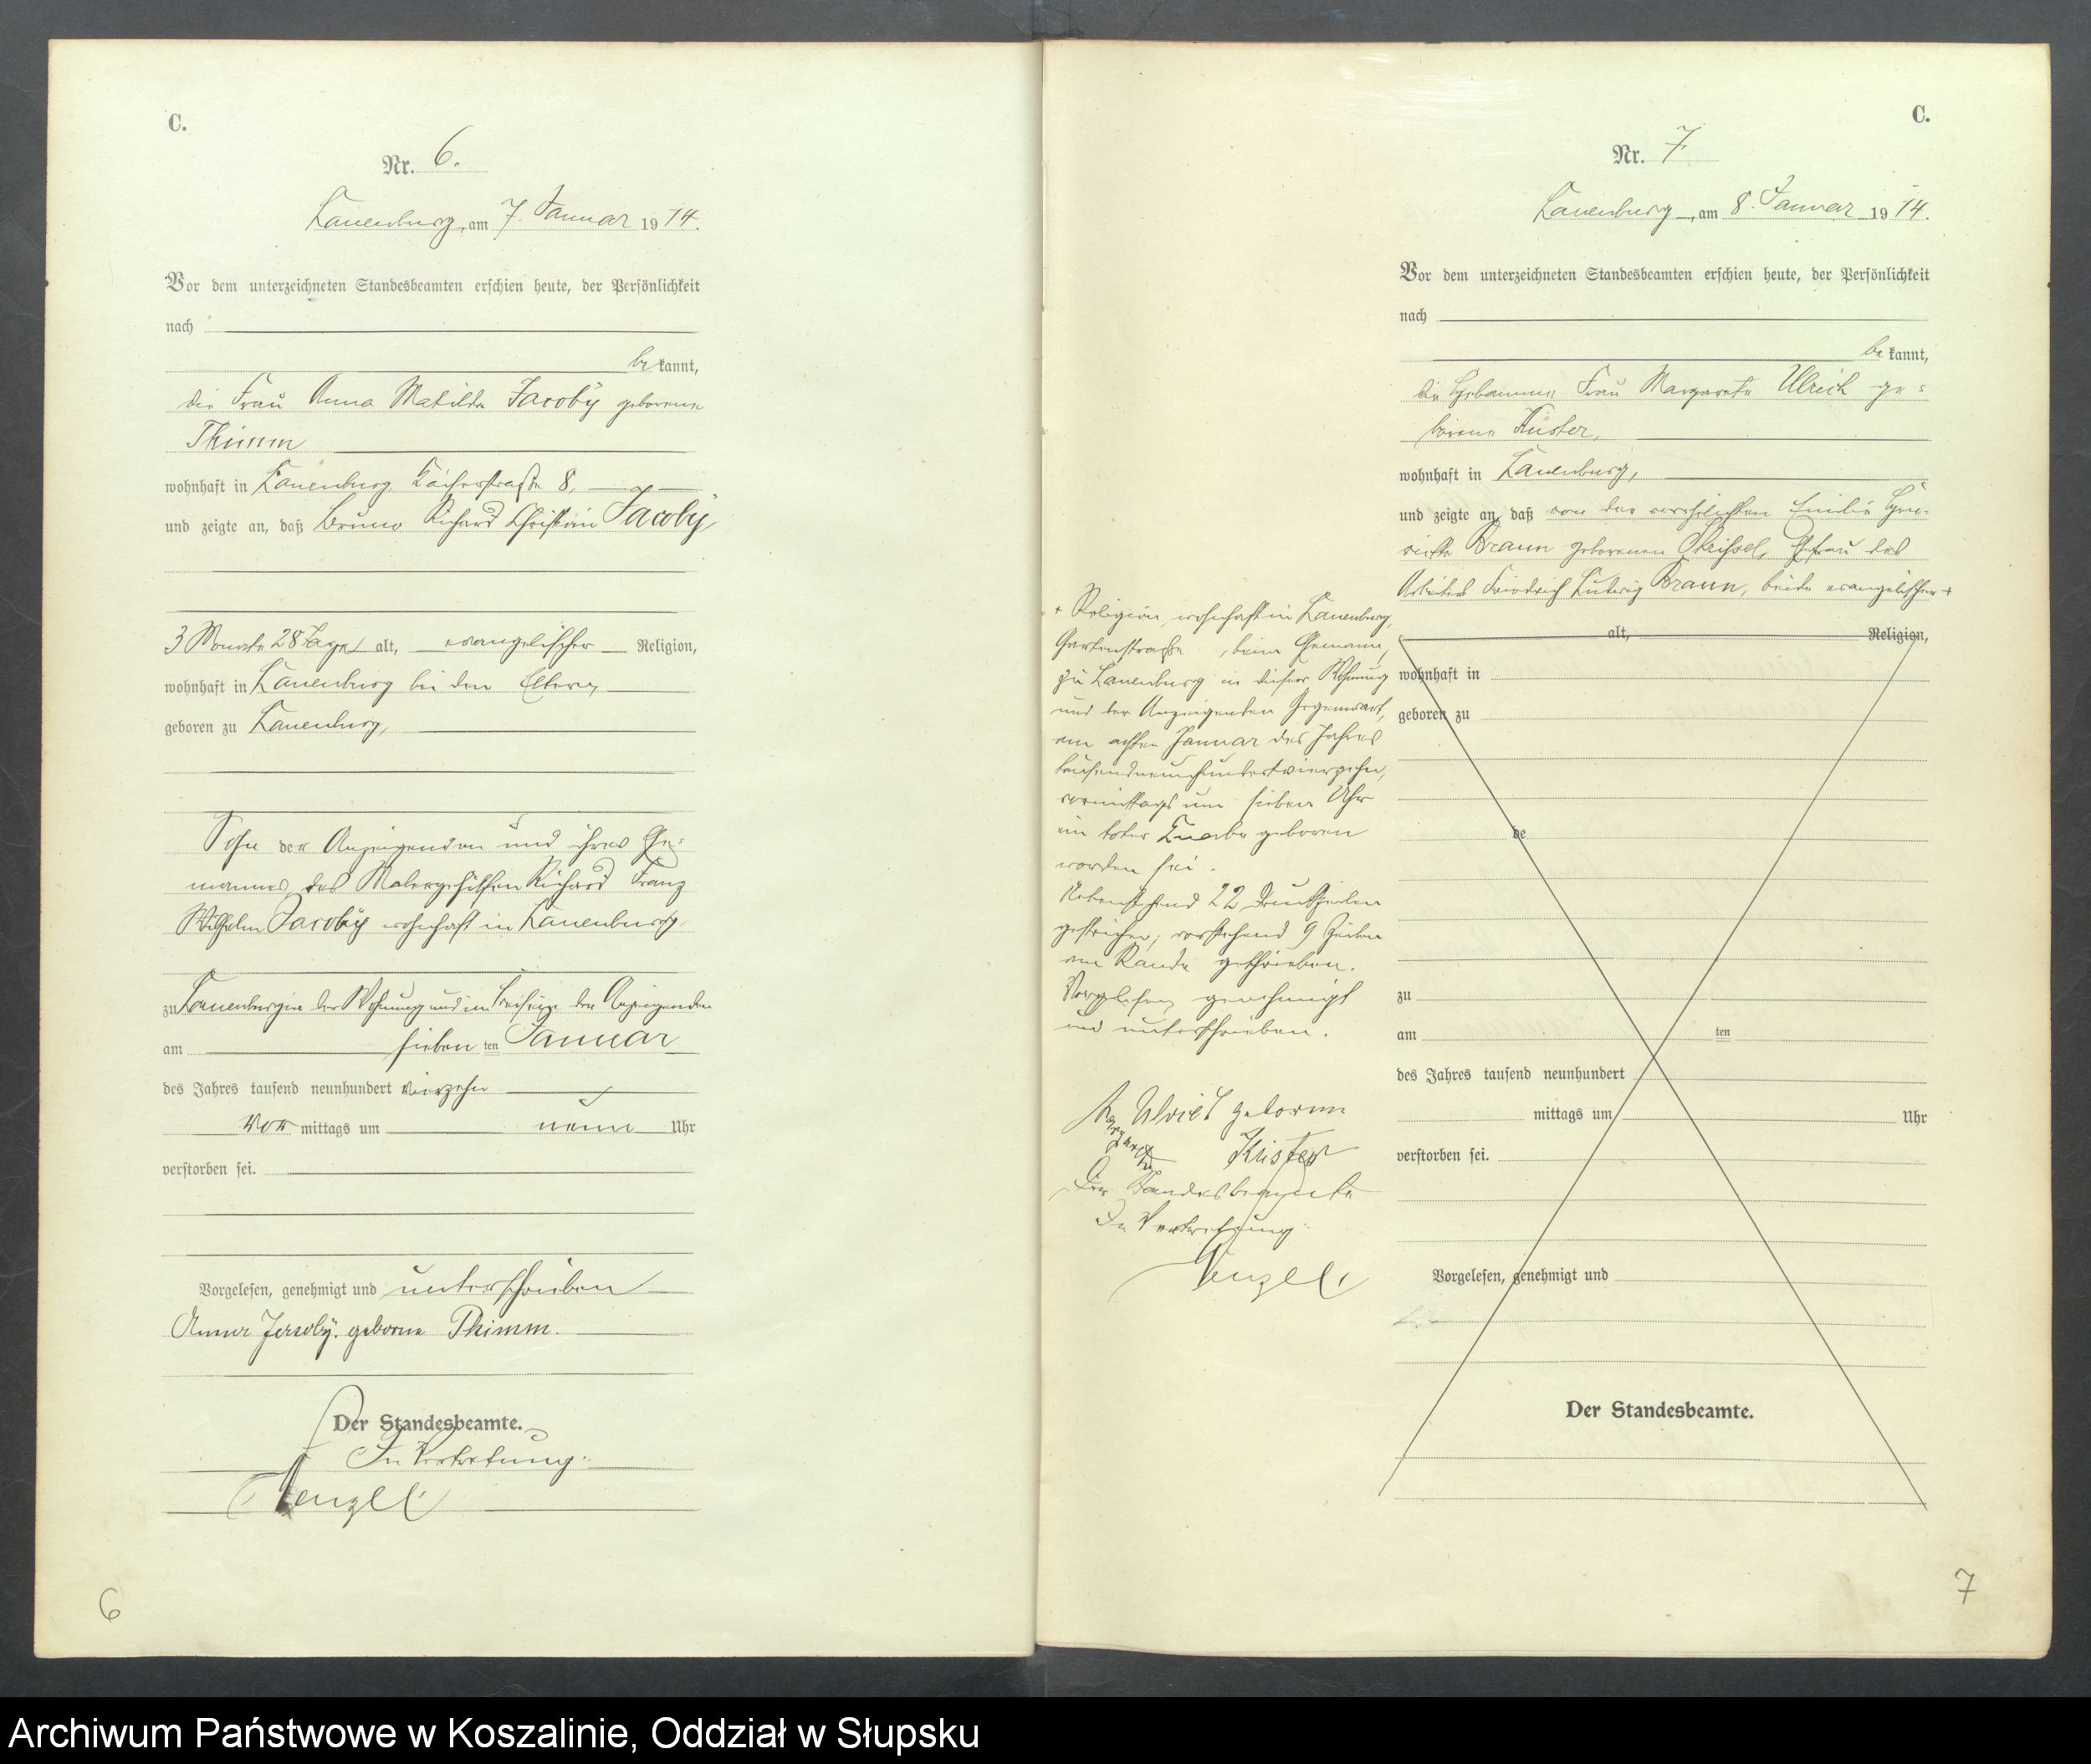 C.
Nr. 6.
Lauenburg, am 7. Januar 1914.
Vor dem unterzeichneten Standesbeamten erschien heute, der Persönlichkeit
nach
bekannt,
die Frau Anna Matilde Jacoby geborene
Thimm
wohnhaft in Lauenburg 8,
und zeigte an, daß Bruno Richard Christian Jacoby
3 Monate 28 Tage alt, evangelischer Religion,
wohnhaft in Lauenburg bei den Eltern
geboren zu Lauenburg,
Sohn der Anzeigenden und ihres Ehe-
mannes, des Malergehilfen Richard Franz
Wilhelm Jacoby wohnhaft in Lauenburg,
zu Lauenburg in der Wohnung und im Beisein der Anzeigenden
am sieben ten Januar
des Jahres tausend neunhundert vierzehn
Vor mittags um neun Uhr
verstorben sei.
Vorgelesen, genehmigt und unterschrieben
Anna Jacoby. geborne Thimm.
Der Standesbeamte.
In Vertretung:
6
C.
Nr. 7
Lauenburg, am 8. Januar 1914.
Vor dem unterzeichneten Standesbeamten erschien heute, der Persönlichkeit
nach
bekannt,
die Hebamme Frau Margarete Ulrich ge=
borene Küster,
wohnhaft in Lauenburg,
und zeigte an, daß von der verehelichten Emilie Hen-
riette Braun geborenen Ehefrau des
Arbeiters Friedrich Ludwig Braun, beide evangelischer +
alt, Religion,
wohnhaft in
geboren zu
be
zu
am ten
des Jahres tausend neunhundert
mittags um Uhr
verstorben sei.
Vorgelesen, genehmigt und
Der Standesbeamte.
+ Religion, wohnhaft in Lauenburg,
Gartenstraße, beim Ehemann,
zu Lauenburg in dieser Wohnung
und der Anzeigenden Gegenwart,
am achten Januar des Jahres
tausendneunhundertvierzehn,
vormittags um sieben Uhr
ein toter Knabe geboren
worden sei.
Nebenstehend 22 Druckzeilen
gestrichen; vorstehend 9 Zeilen
am Rande geschrieben.
Vorgelesen, genehmigt
und unterschrieben.
Margarete Ulrich geborne
Küster
Der Standesbeamte
In Vertretung:
7
Archiwum Państwowe w Koszalinie, Oddział w Słupsku